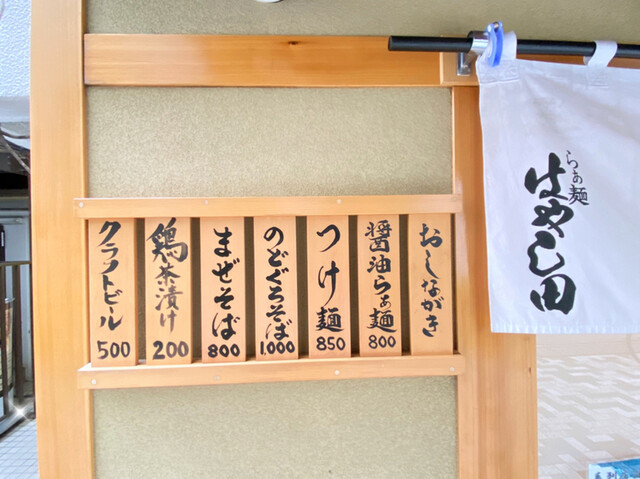 らぁ麺
はやし田
おしながき
醤油らぁ麺 800
つけ麺 850
のどぐろそば 1,000
まぜそば 800
鶏茶漬け 200
クラフトビール 500